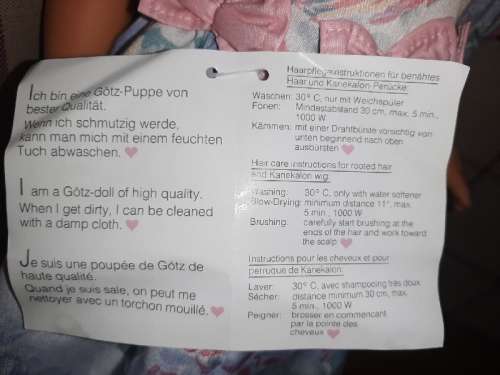 Ich bin eine Götz-Puppe von
bester Qualität.
Wenn ich schmutzig werde,
kann man mich mit einem feuchten
Tuch abwaschen.
I am a Götz-doll of high quality.
When I get dirty, I can be cleaned
with a damp cloth.
Je suis une poupée de Götz de
haute qualité.
Quand je suis sale, on peut me
nettoyer avec un torchon mouillé.
Haarpflegeinstruktionen für benähtes
Haar und Kanekalon-Perücke:
Waschen: 30° C, nur mit Weichspüler
Fönen: Mindestabstand 30 cm, max. 5 min.,
1000 W
Kämmen: mit einer Drahtbürste vorsichtig von
unten beginnend nach oben
ausbürsten
Hair care instructions for rooted hair
and Kanekalon wig:
Washing: 30° C, only with water softener
Blow-Drying: minimum distance 11", max.
5 min., 1000 W
Brushing: carefully start brushing at the
ends of the hair and work toward
the scalp
Instructions pour les cheveux et pour
perruque de Kanekalon:
Laver: 30° C, avec shampooing très doux
Sécher: distance minimum 30 cm, max.
5 min., 1000 W
Peigner: brosser en commencant
par la pointe des
cheveux